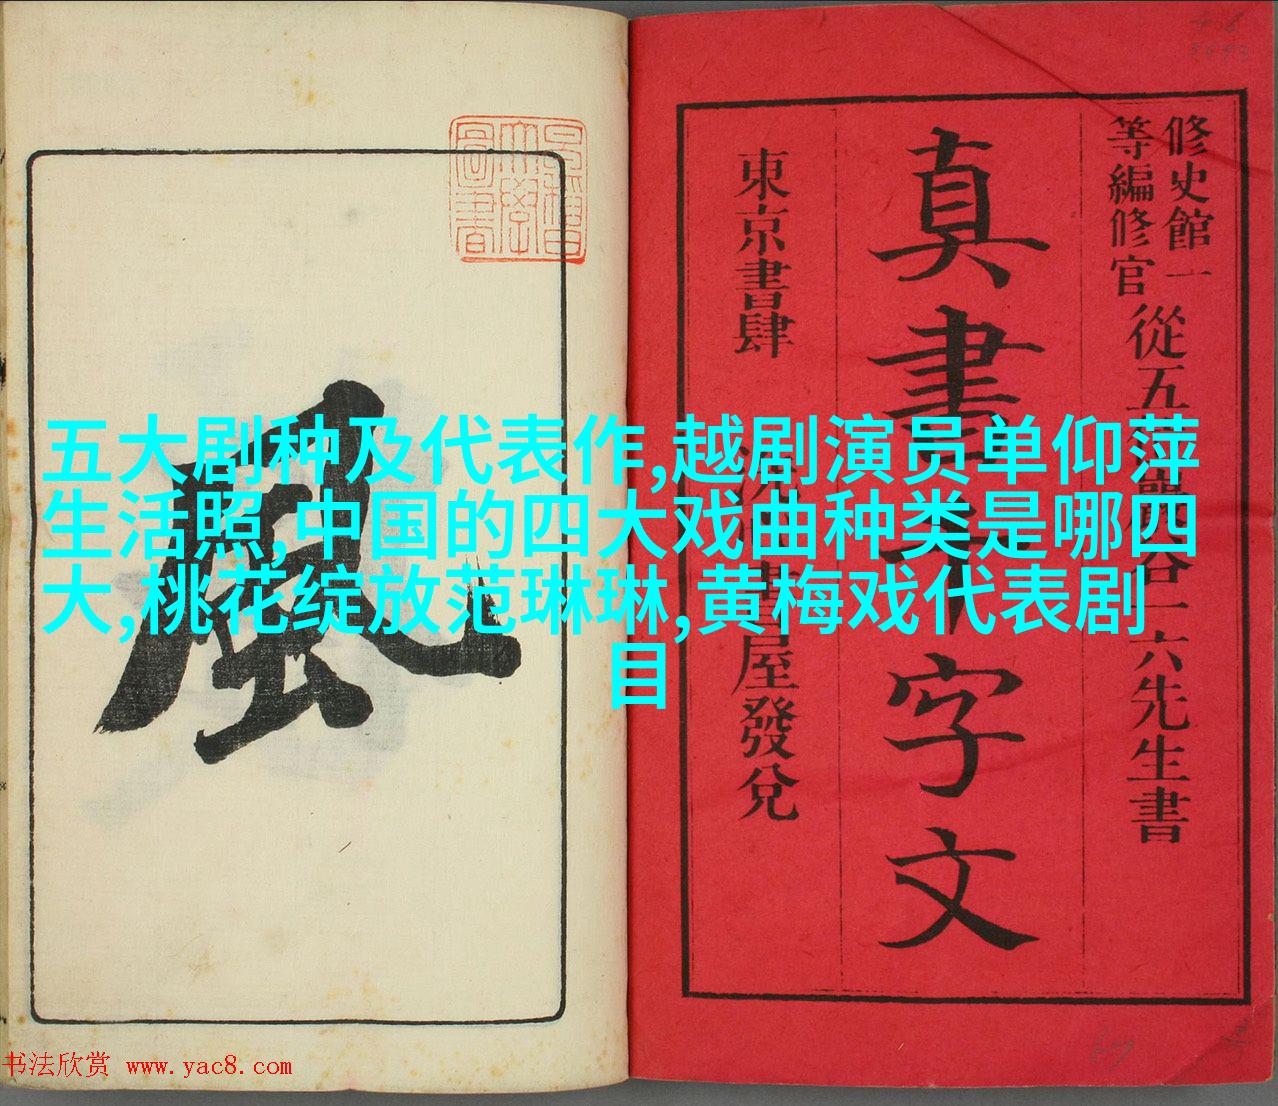 修史館一
等編修官
從五谷一六先生書
真書千字文
東京書肆
書屋發兌
風
五大剧种及代表作,越剧演员单仰萍
生活照,中国的四大戏曲种类是哪四
大,桃花绽放范琳琳,黄梅戏代表剧
目
书法欣赏 www.yac8.com